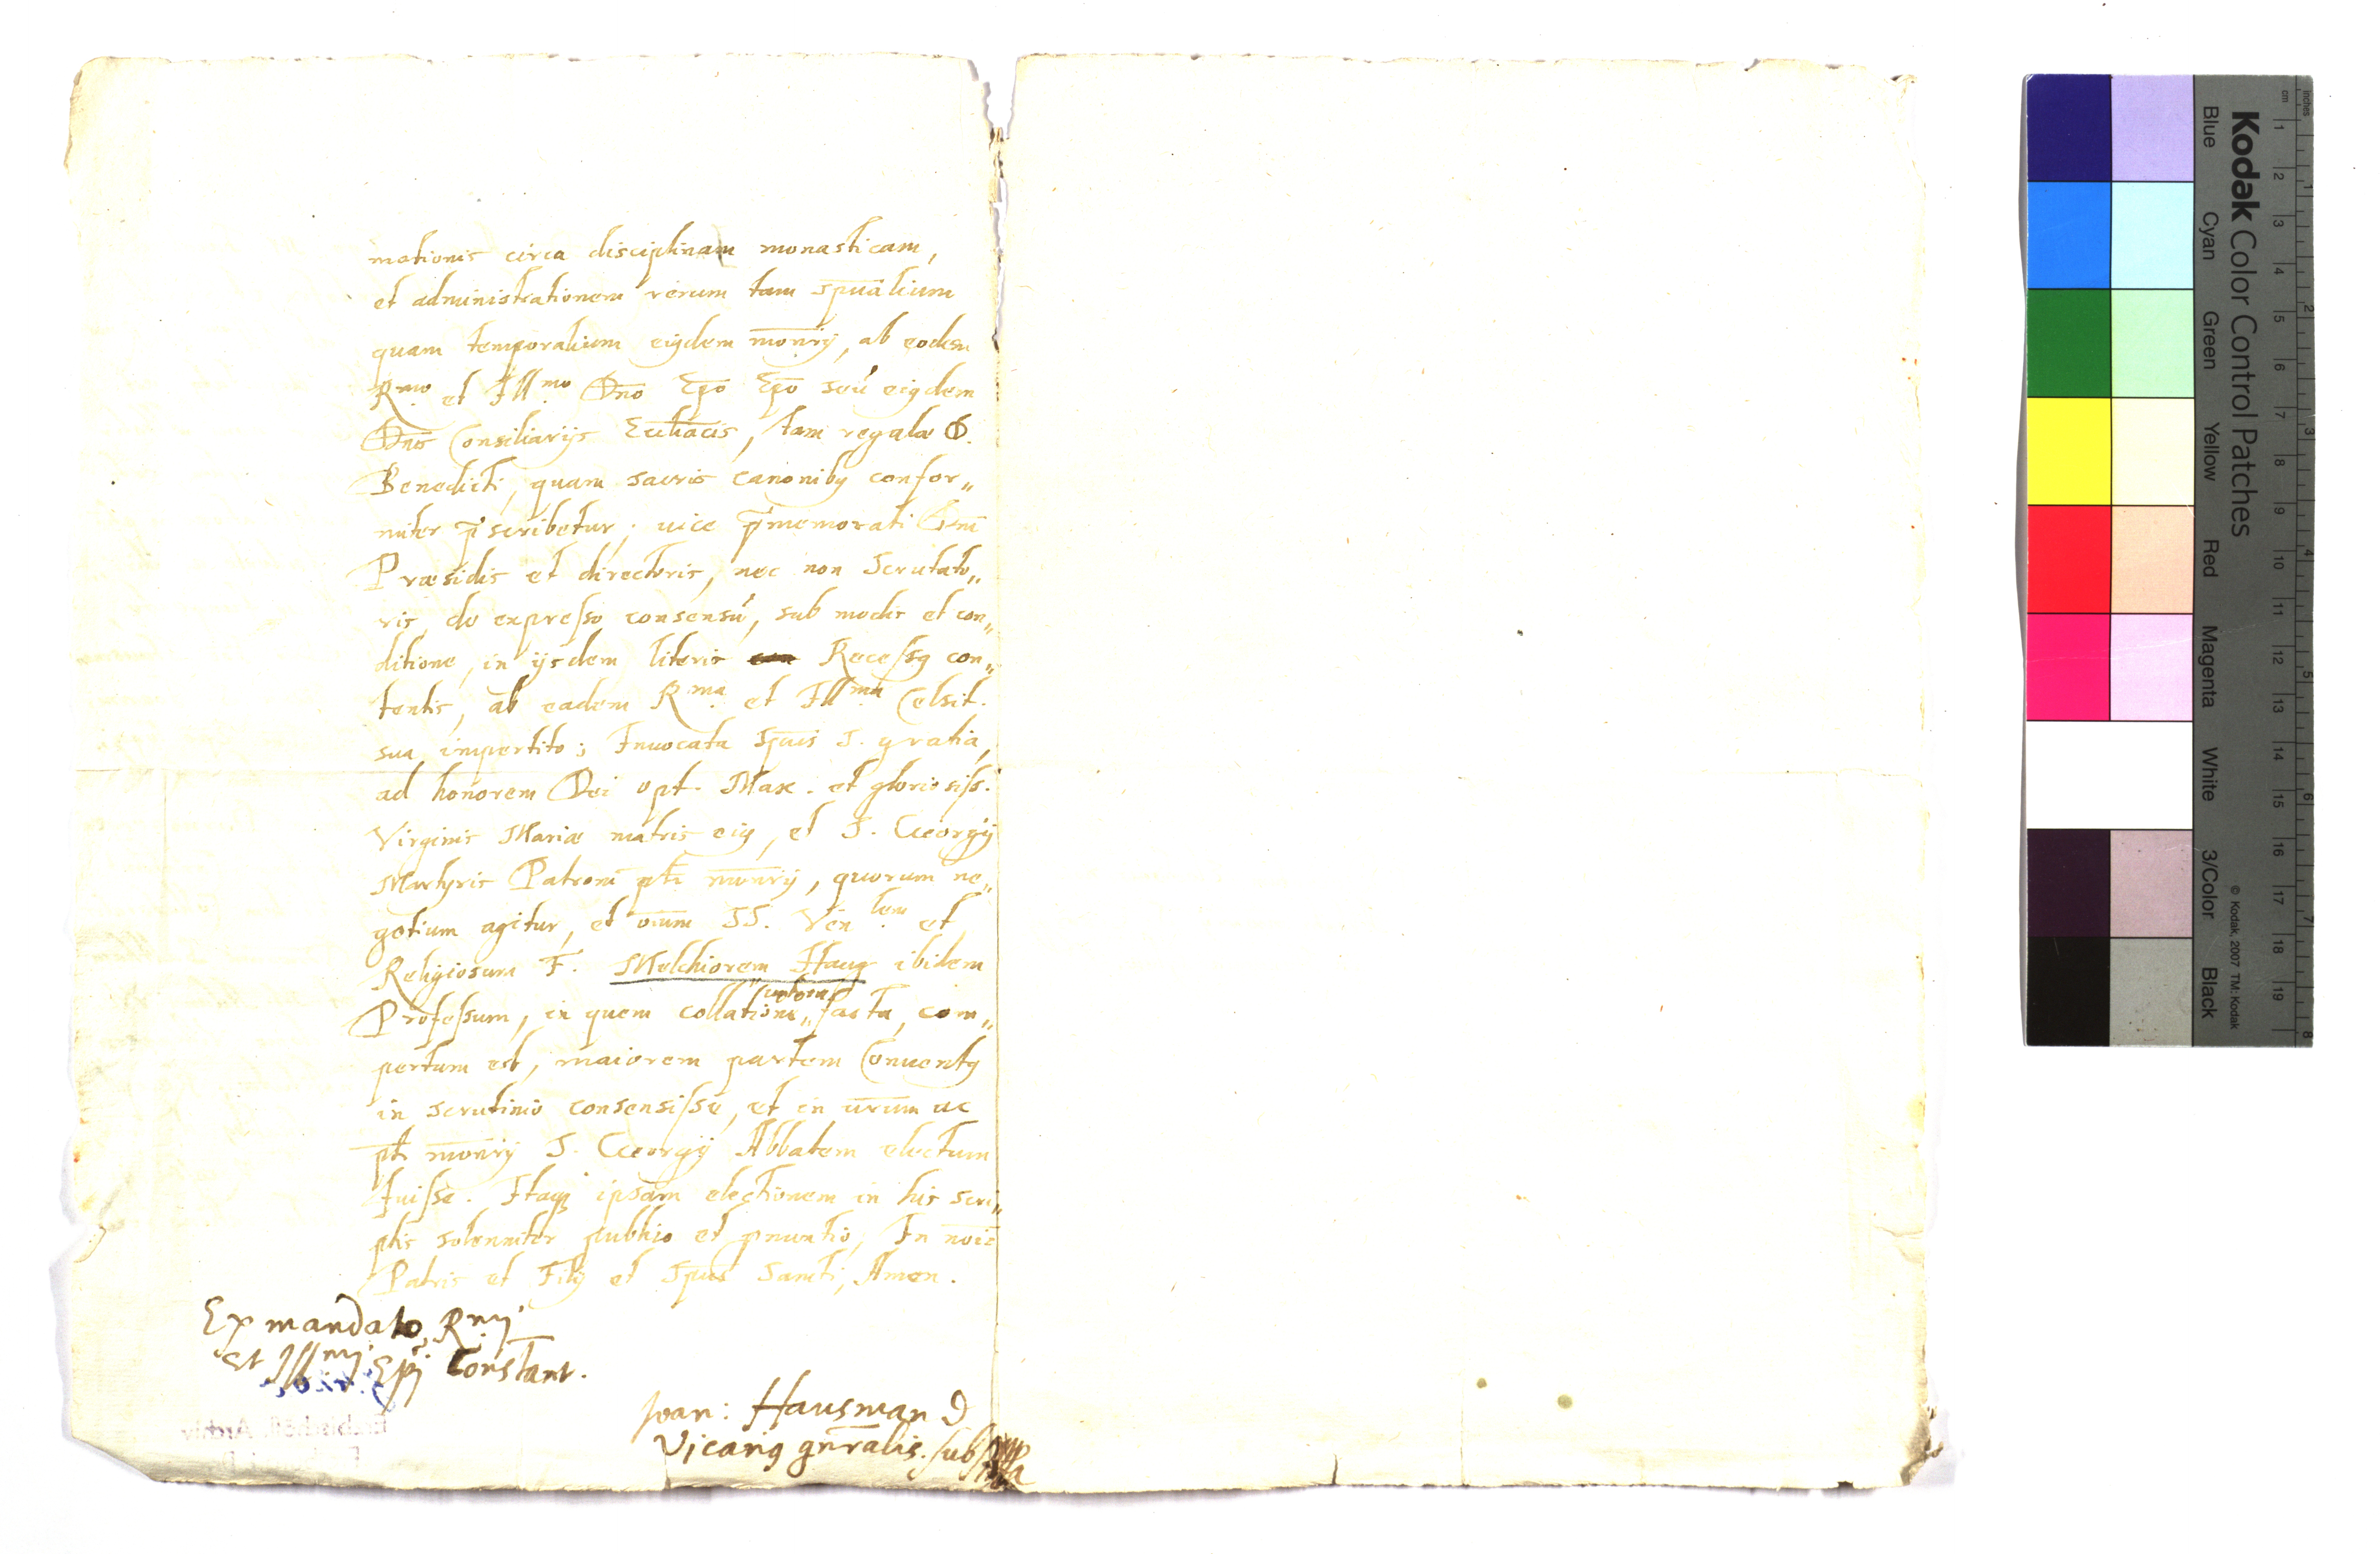 mationis circa disciplinam monasticam,
et administrationem rerum tam spualium
quam temporalium eiusdem monrij, ab eodem
Rmo. et Illmo. Dno Epo Epo seu eigdem
Dnis Consiliarijs Ecctiacis, tam regulæ D.
Benedicti, quam sacris canonibq confor„
miter p̄scribetur; uice p̄memorati Dni
Præsidis et directoris, nec non Scrutato„
ris, de expresso consensu, sub modis et con„
ditione, in ijsdem literis Recessq con„
tentis, ab eadem Rma. et Illma. Celsit.
sua impertito; Inuocata Spuis S. gratia,
ad honorem Dei opt. Max. et gloriosiss.
Virginis Mariæ matris eiq, et S. Georgij
Martyris Patroni pti monrij, quorum ne„
gotium agitur, et oium SS. Ven lem. et
Religiosum F. Melchiorem Haug ibidem
Professum, in quem collatione„ facta, com„
pertum est, maiorem partem Conuentq
in scrutinio consensisse, et in urum ac
pti monrij S. Georgij Abbatem electum
fuisse. Itaq ipsam electionem in his scri„
ptis solenniter publico et pnuntio, In noie
Patris et Filij et Spus Sancti, Amen.
Ex mandato Rmj
et Illmj. Epi Constant.
Joan: Hausman D
Vicariq gnralis. subss
Kodak Color Control Patches
Blue Cyan Green Yellow Red Magenta White 3/Color Black
© Kodak, 2007 TM: Kodak
inches 1 2 3 4 5 6 7 8
cm 1 2 3 4 5 6 7 8 9 10 11 12 13 14 15 16 17 18 19